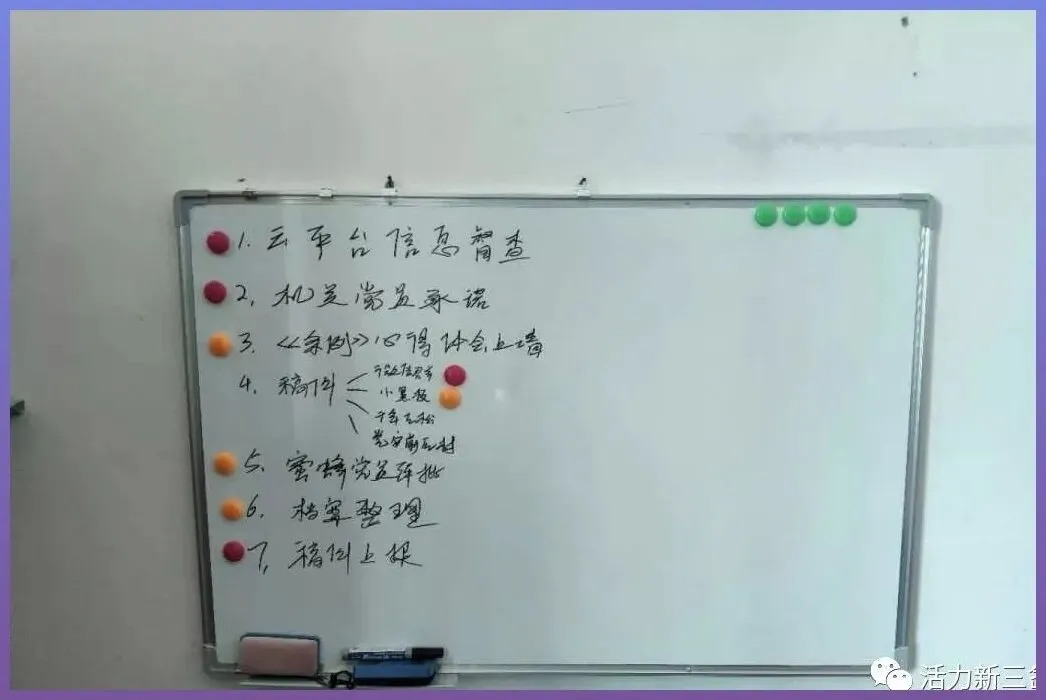 1. 云平台信息督查
2. 机关党员承诺
3. 《条例》心得体会上墙
4. 稿件
小黑板
5. 蜜蜂党员
6. 档案整理
7. 稿件上报
活力新三